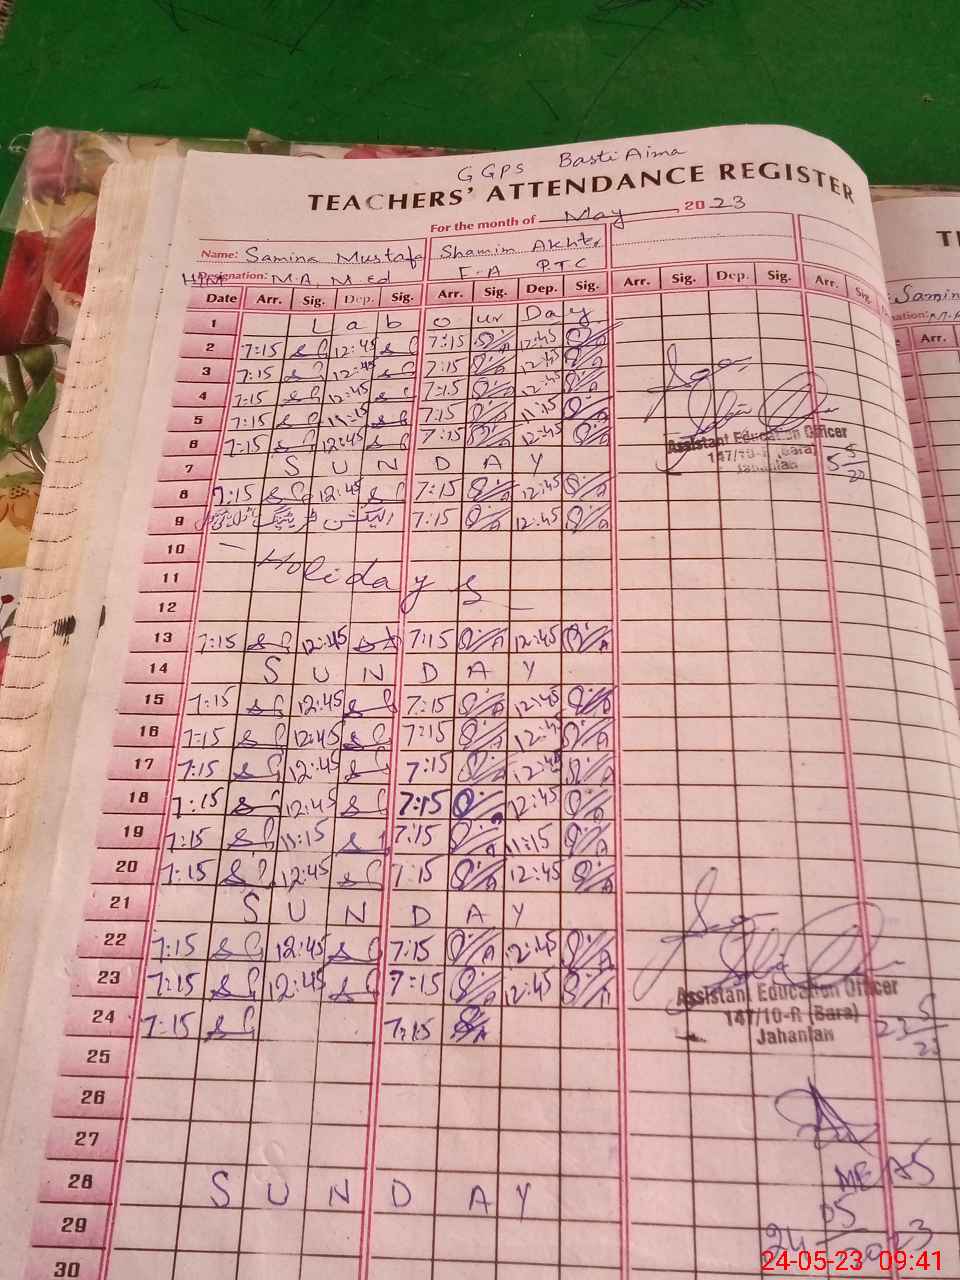 GGPS Basti Aima
TEACHERS' ATTENDANCE REGISTER
For the month of May, 2023
Name: Samina Mustafa Shamim Akhter
Designation: M.A, M.Ed F.A PTC
Date Arr. Sig. Dep. Sig. Arr. Sig. Dep. Sig. Arr. Sig. Dep. Sig. Arr. Sig.
1 Labour Day
2 7:15 12:45 7:15 12:45
3 7:15 12:45 7:15 12:45
4 7:15 12:45 7:15 12:45
5 7:15 11:15 7:15 11:15
6 7:15 12:45 7:15 12:45
7 SUNDAY
8 7:15 12:45 7:15 12:45
9 7:15 12:45
10
11 Holidays
12
13 7:15 12:45 7:15 12:45
14 SUNDAY
15 7:15 12:45 7:15 12:45
16 7:15 12:45 7:15 12:45
17 7:15 12:45 7:15 12:45
18 7:15 12:45 7:15 12:45
19 7:15 11:15 7:15 11:15
20 7:15 12:45 7:15 12:45
21 SUNDAY
22 7:15 12:45 7:15 12:45
23 7:15 12:45 7:15 12:45
24 7:15 7:15
25
26
27
28 SUNDAY
29
30
Assistant Education Officer
147/10-R (Sara)
Jahanian
Assistant Education Officer
147/10-R (Sara)
Jahanian
23 5
23
MEA
24 05 2023
Samin
Arr.
24-05-23 09:41